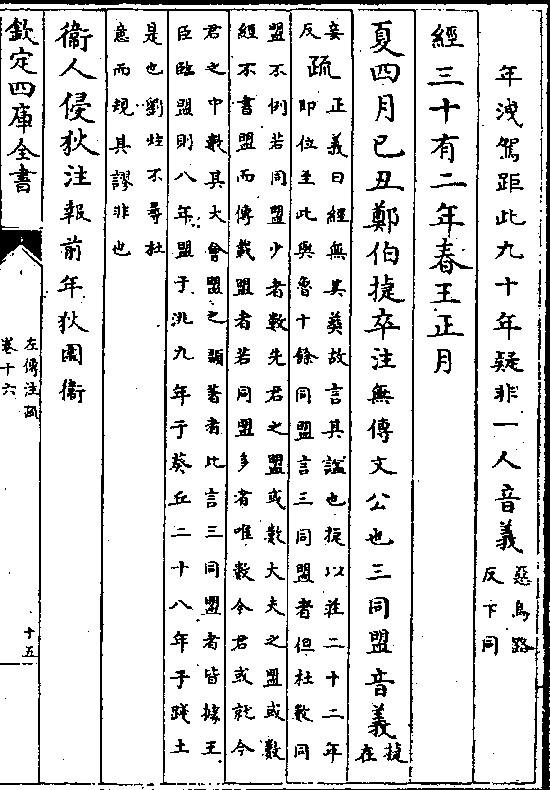 年洩駕距此九十年疑非一人音義惡烏路
反下同
經三十有二年春王正月
夏四月己丑鄭伯捷卒注無傳文公也三同盟音義捷在
妾
反疏正義曰經無其葬故言其諡也捷以莊二十二年
即位至此與魯十餘同盟言三同盟者但杜數同
盟不例若同盟少者數先君之盟或數大夫之盟或數
經不書盟而傳載盟者若同盟多者唯數今君或就今
君之中數其大會盟之顯著者此言三同盟者皆據王
臣臨盟則八年盟于洮九年于葵丘二十八年于踐土
是也劉炫不尋杜
意而規其謬非也
衛人侵狄注報前年狄圍衛
欽定四庫全書
左傳注疏
卷十六
十五